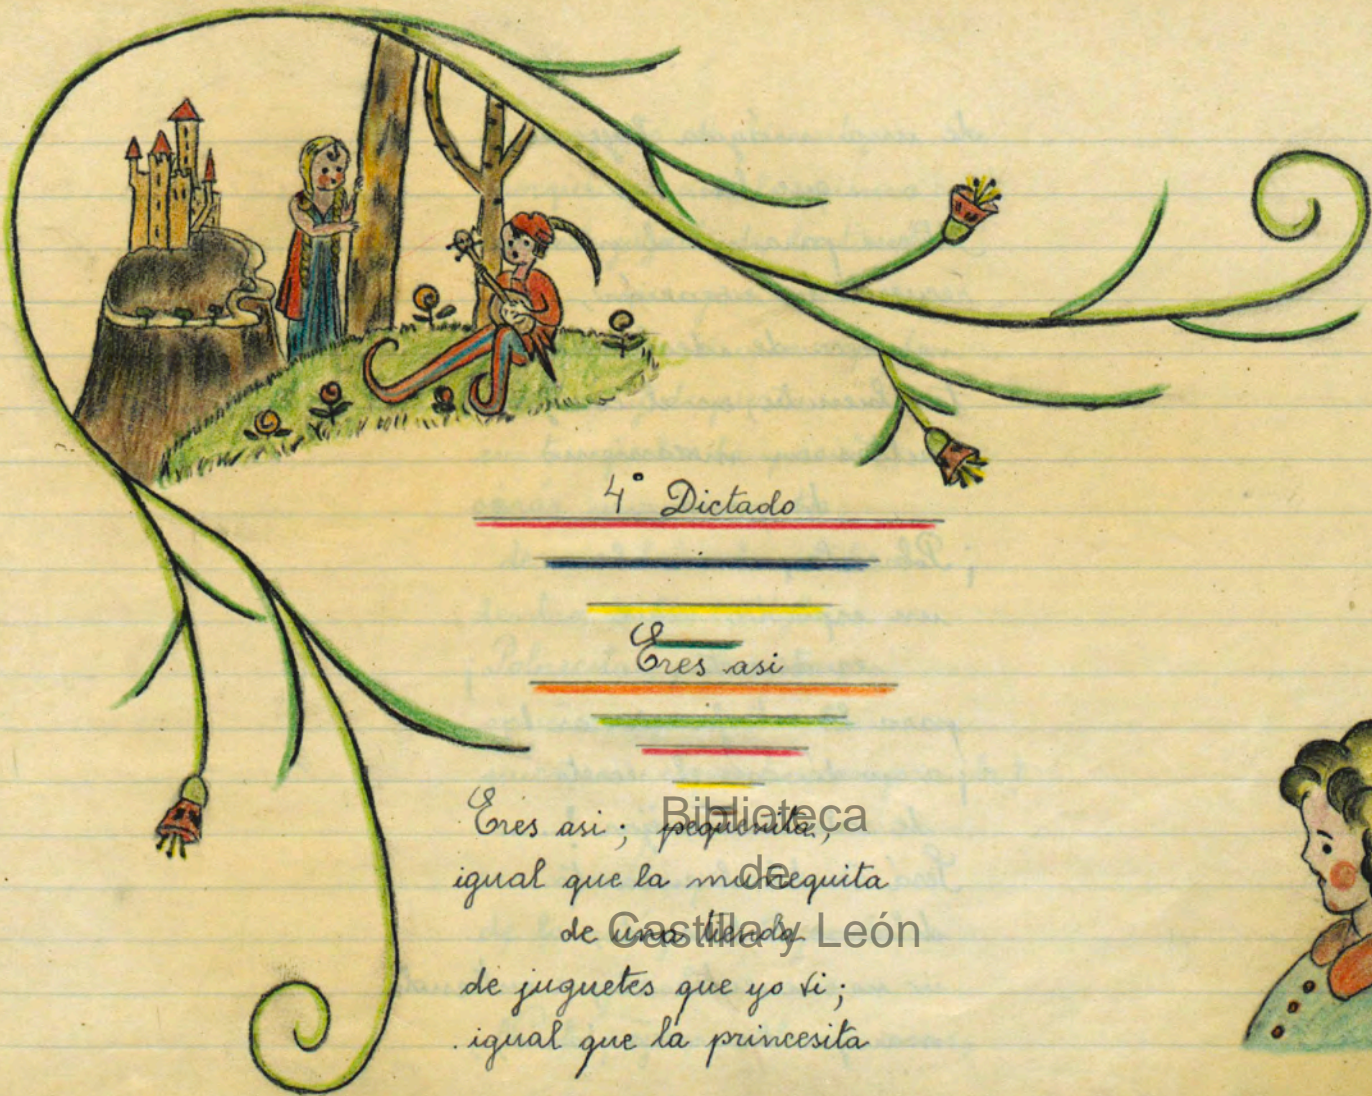 4° Dictado
Eres asi
Eres asi; pequeñita,
igual que la muñequita
de una tienda
de juguetes que yo vi;
igual que la princesita
Biblioteca
de
Castilla y León